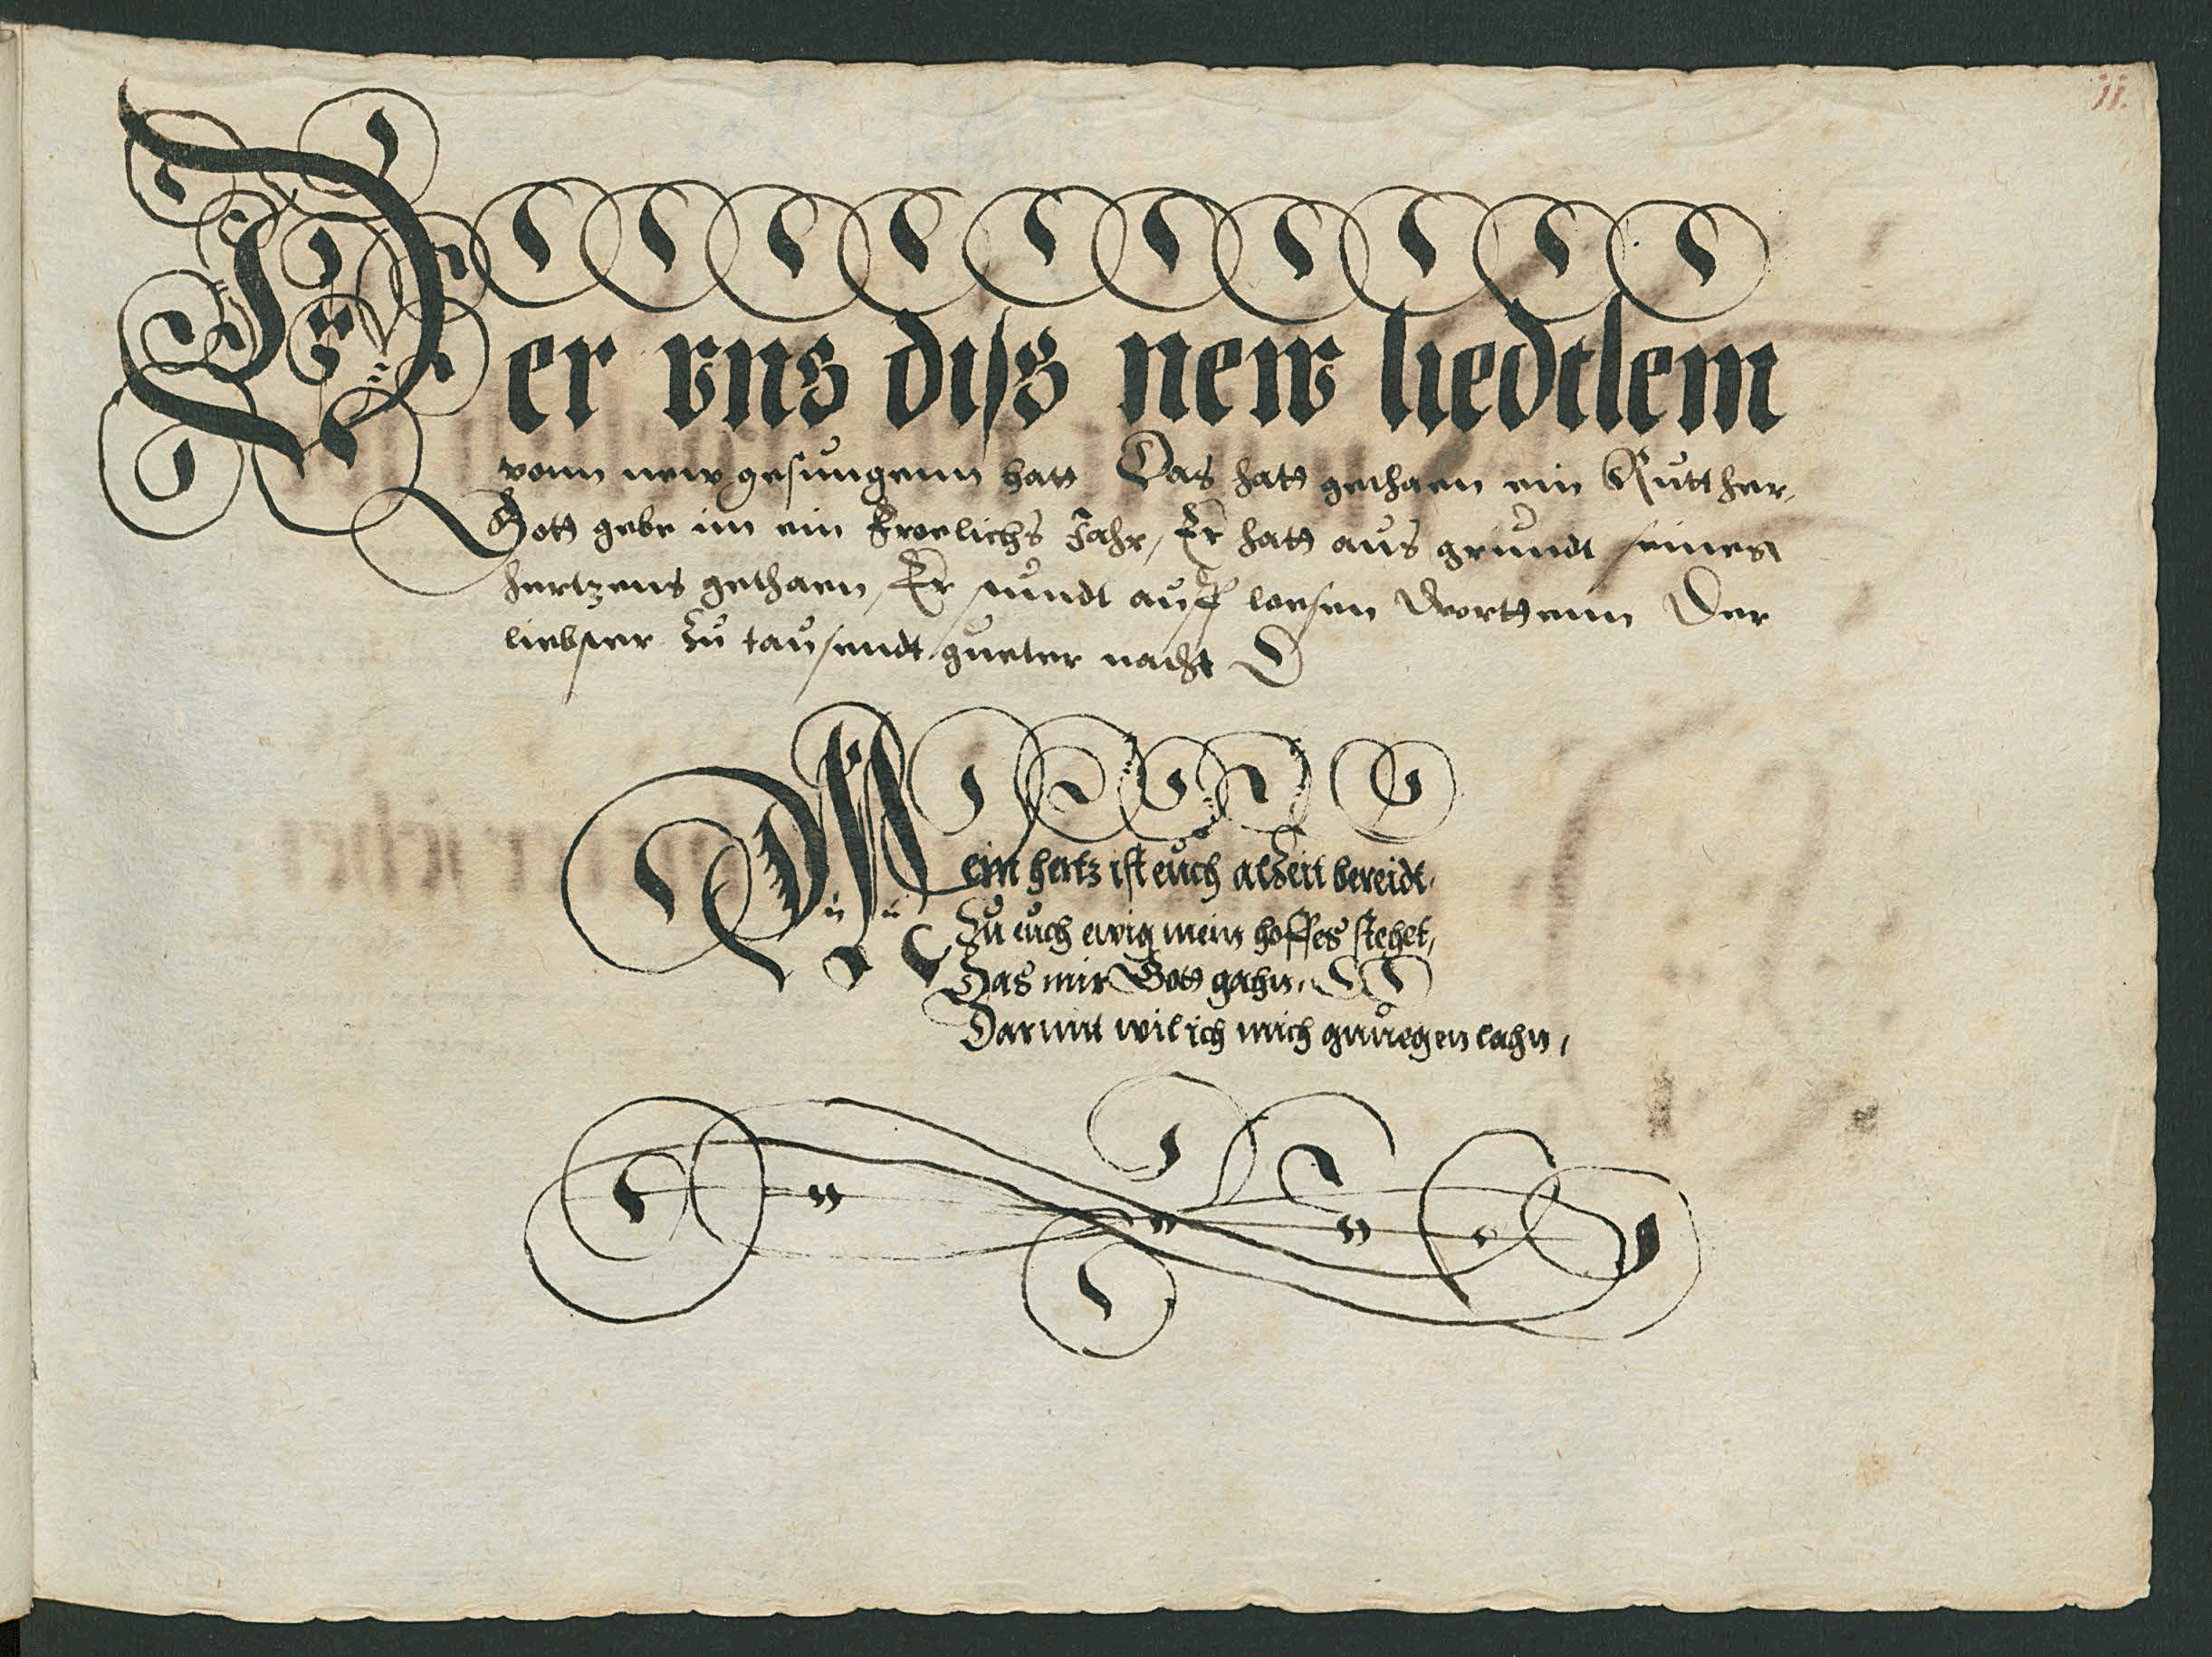 11.
Der vns diss new liedtlein
vonn new gesungenn hatt Das hatt gethaen ein Rutther,
Gott gebe im ein Froelichs Jahr, Er hatt aus grundt seines
hertzens gethaen, Er sundt auff loesen Wortt enn Der
liebster Zu tausendt gueter nacht
Mein hertz ist euch alZeit bereidt.
Zu euch ewig mein hoffes stehet,
Das mir Gott gahn,
Darmit wil ich mich gnuegen lahn,